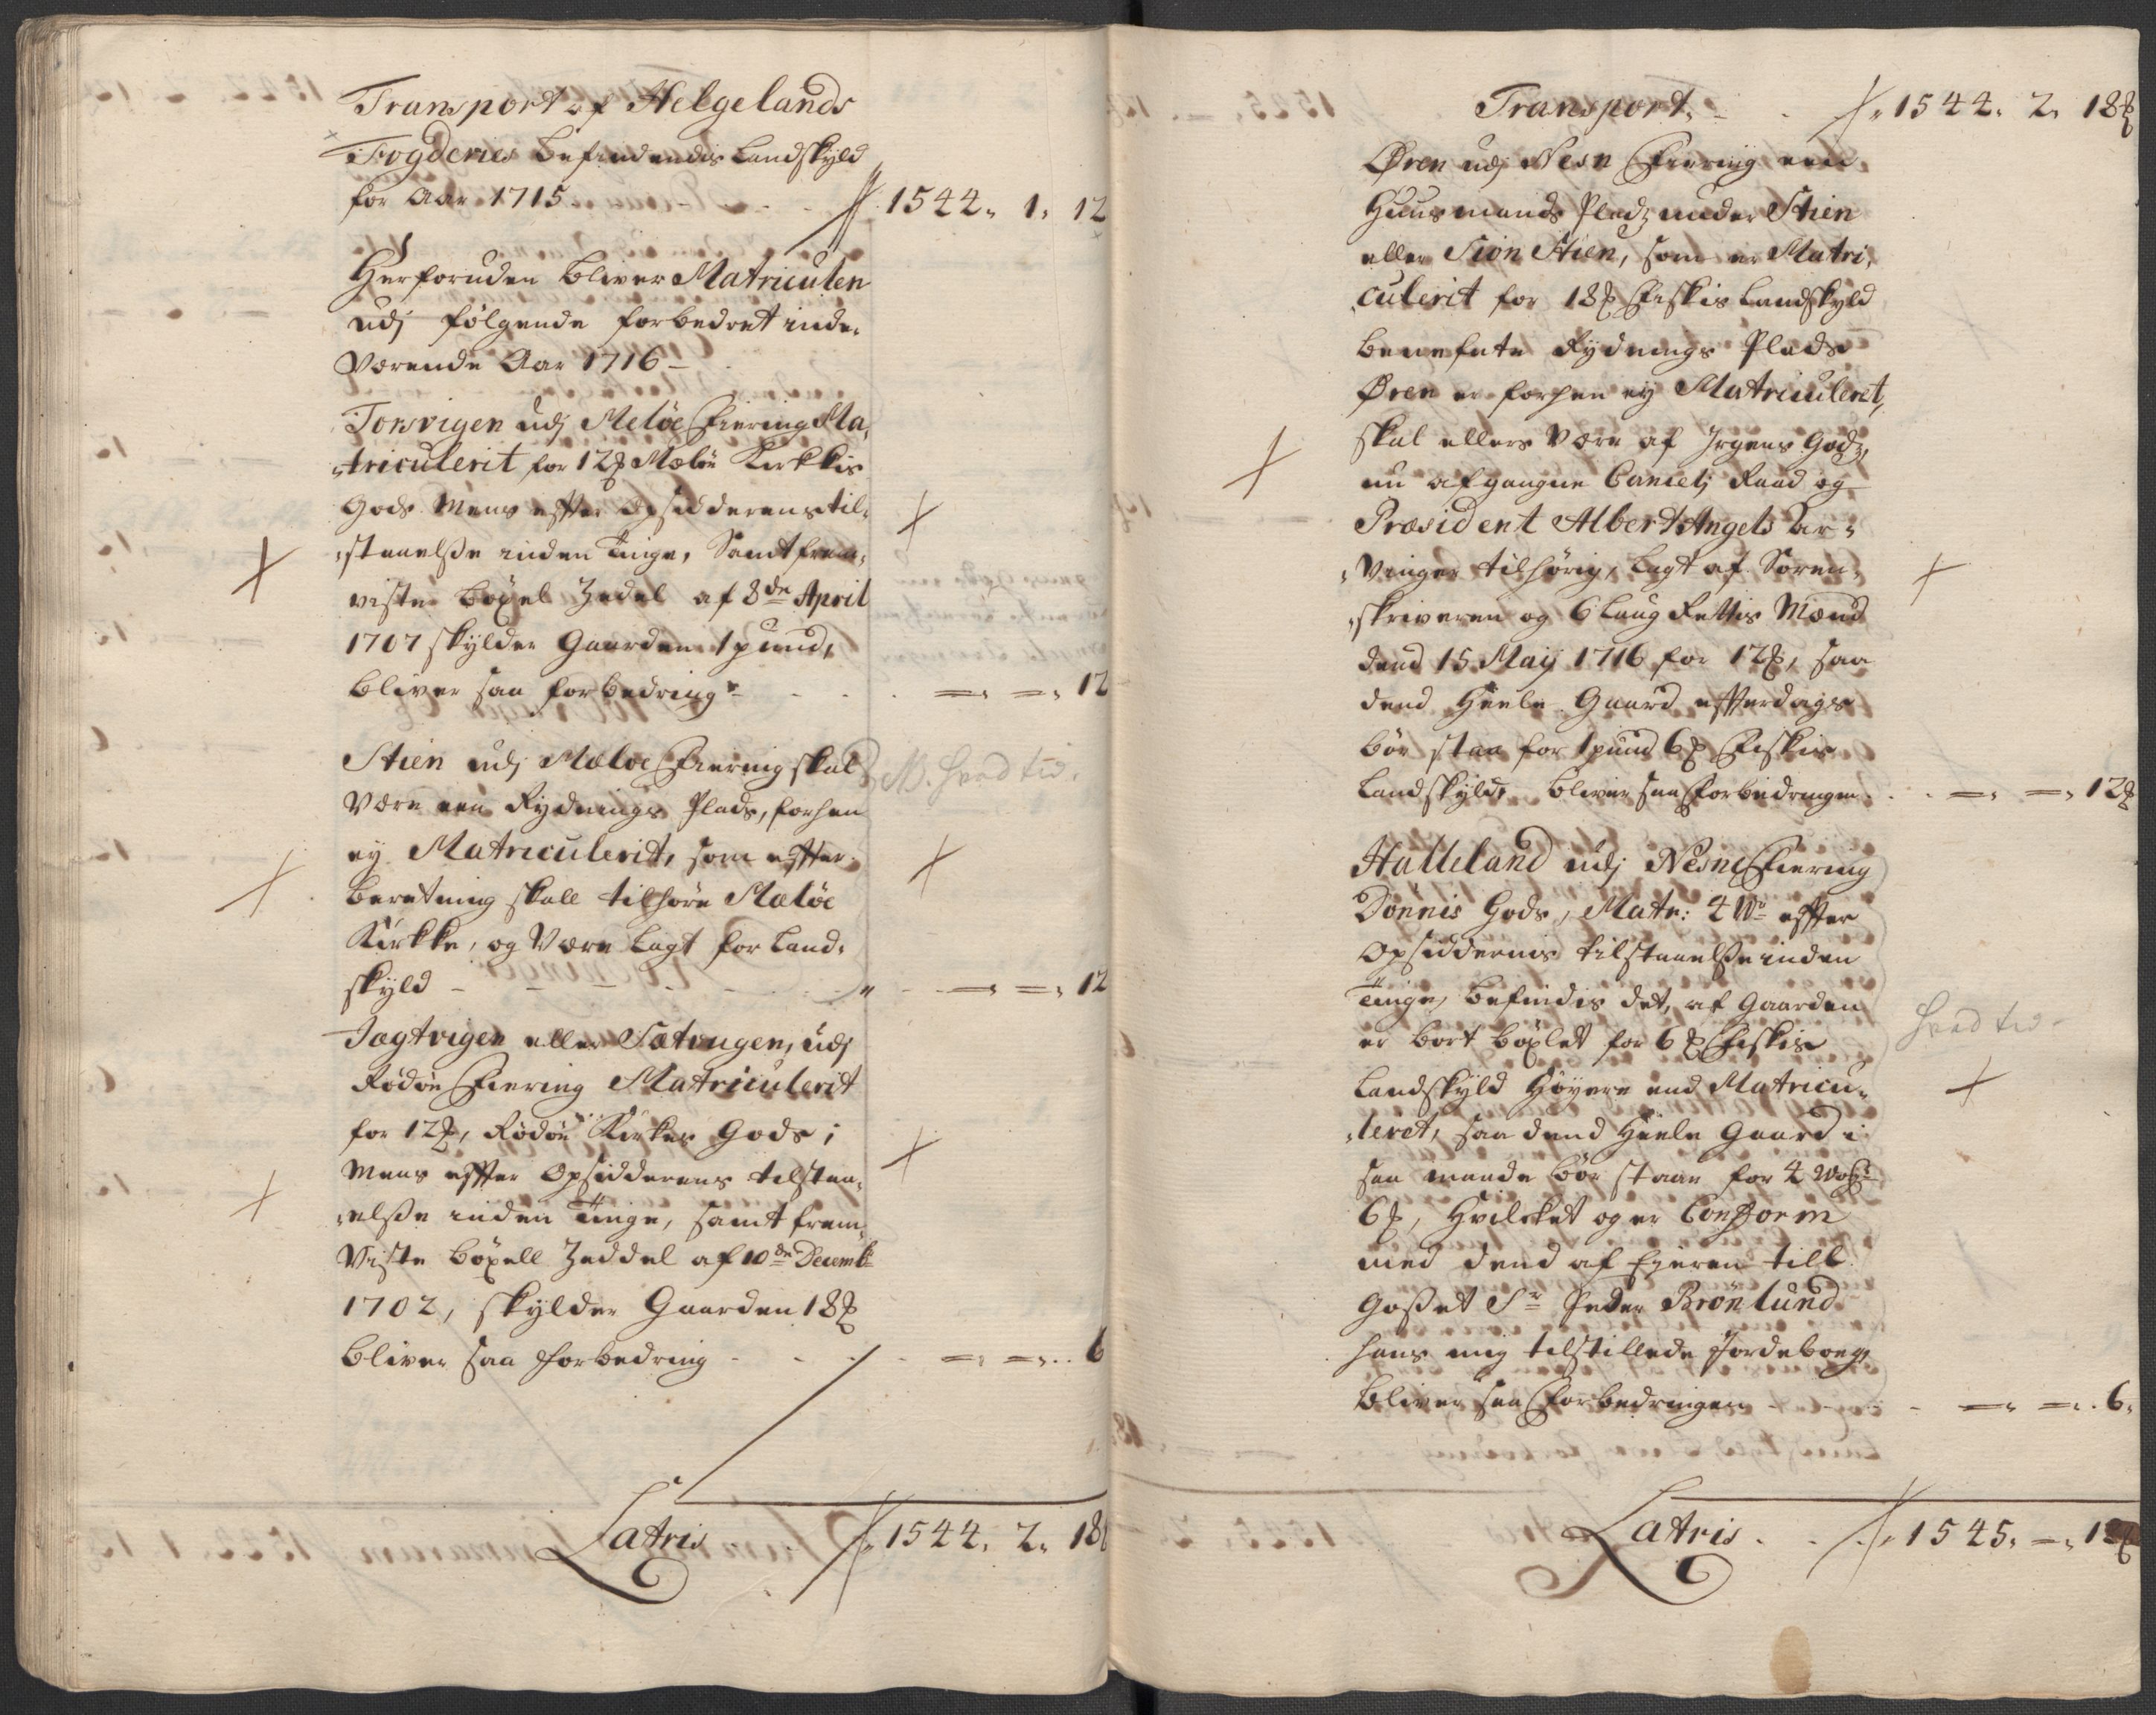 Transport af Helgelands
Fogderies befindendis Landskyld
for Aar 1715 - - 1544. 1. 12
Herforuden bliver Matriculen
udj følgende forbedret inde-
værende Aar 1716 -
Torsvigen udj Meløe Fiering Ma-
triculerit for 12 ℔ Meløe Kirkkis
Gods Mens effter Opsidderens til-
staaelsse inden Tinge, Samt frem-
viste böxel Zedel af 8de April
1707 skylder Gaarden 1 pund,
bliver saa forbedring - - - =. =. 12
Stien udj Meløe Fiering skal NB. hvad tid.
Være een Rydnings Plads, forhen
ey Matriculerit, som effter
beretning skall tilhøre Meløe
Kirkke, og Være lagt for Land-
skyld - - - - =. =. 12
Jægtvigen eller Sætvigen, udj
Rødøe Fiering Matriculerit
for 12 ℔, Rødøe Kirkes Gods;
Mens effter Opsidderens tilstaa-
elsse inden Tinge, samt frem-
Viste böxell Zeddel af 10de Decemb:
1702, skylder Gaarden 18 ℔
bliver saa forbedring - - - =. =. 6
Latris - 1544. 2. 18
Transport. - 1544. 2. 18 ℔
Øren udj Nesn Fiering een
Huusmands Pladz under Stien
eller Sion Stien, som er Matri-
culerit for 18 ℔ Fiskis Landskyld
benefnte Rydnings Plads
Øren er forhen ey Matriculeret,
skal ellers Være af Jrgens Godz,
nu afgangne Cancelj Raad og
Præsident Albert Angels Ar-
Vinger tilhørig, lagt af Soren-
skriveren og 6 Laug Rettis Mænd
dend 15 Maij 1716 for 12 ℔, saa
dend Heele Gaard effterdags
bör staa for 1 pund 6 ℔ Fiskis
Landskyld, bliver saa Forbedringen. - =. =. 12 ℔
Halleland udj Nesne Fiering
Donnis Gods, Matr: 4 W: effter
Opsiddernis tilstaaelsse inden
Tinge, befindis det, af Gaarden hvad tid -
er bort böxlet for 6 ℔ Fiskis
Landskyld Høyere end Matricu-
leret, saa dend Heele Gaard i
saa maade bör staae for 4 Wog:
6 ℔, Hvilcket og er Conform
med dend af Eyeren till
Godset Sr Peder Brønlund
hans mig tilstillede Jordeboeg,
bliver saa Forbedringen - - =. =. 6.
Latris. - - 1545. =. 12 ℔